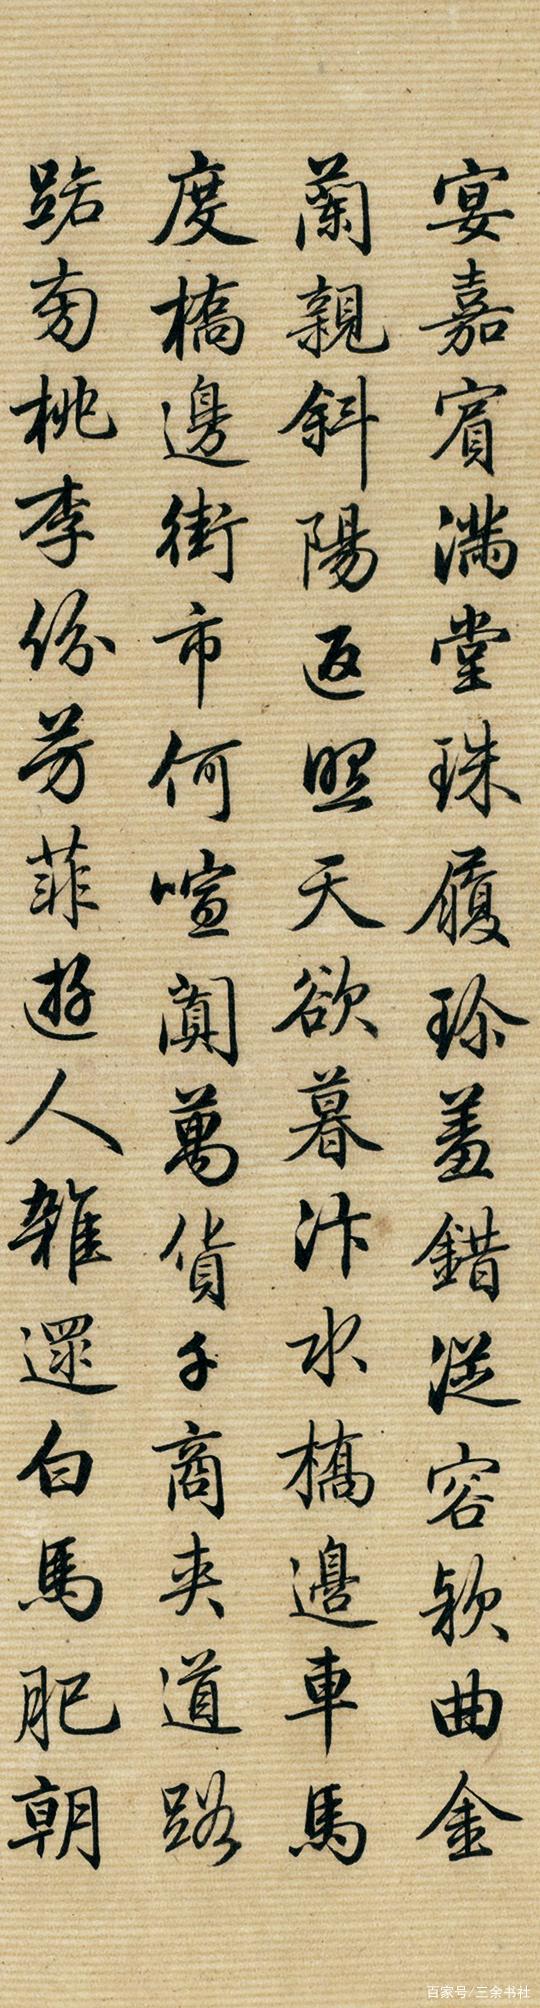 宴嘉賓滿堂珠履珍羞錯從容款曲金
蘭親斜陽返照天欲暮汴水橋邊車馬
度橋邊街市何喧闐萬貨千商夾道路
路旁桃李份芳菲遊人雜還白馬肥朝
百家号/三余书社